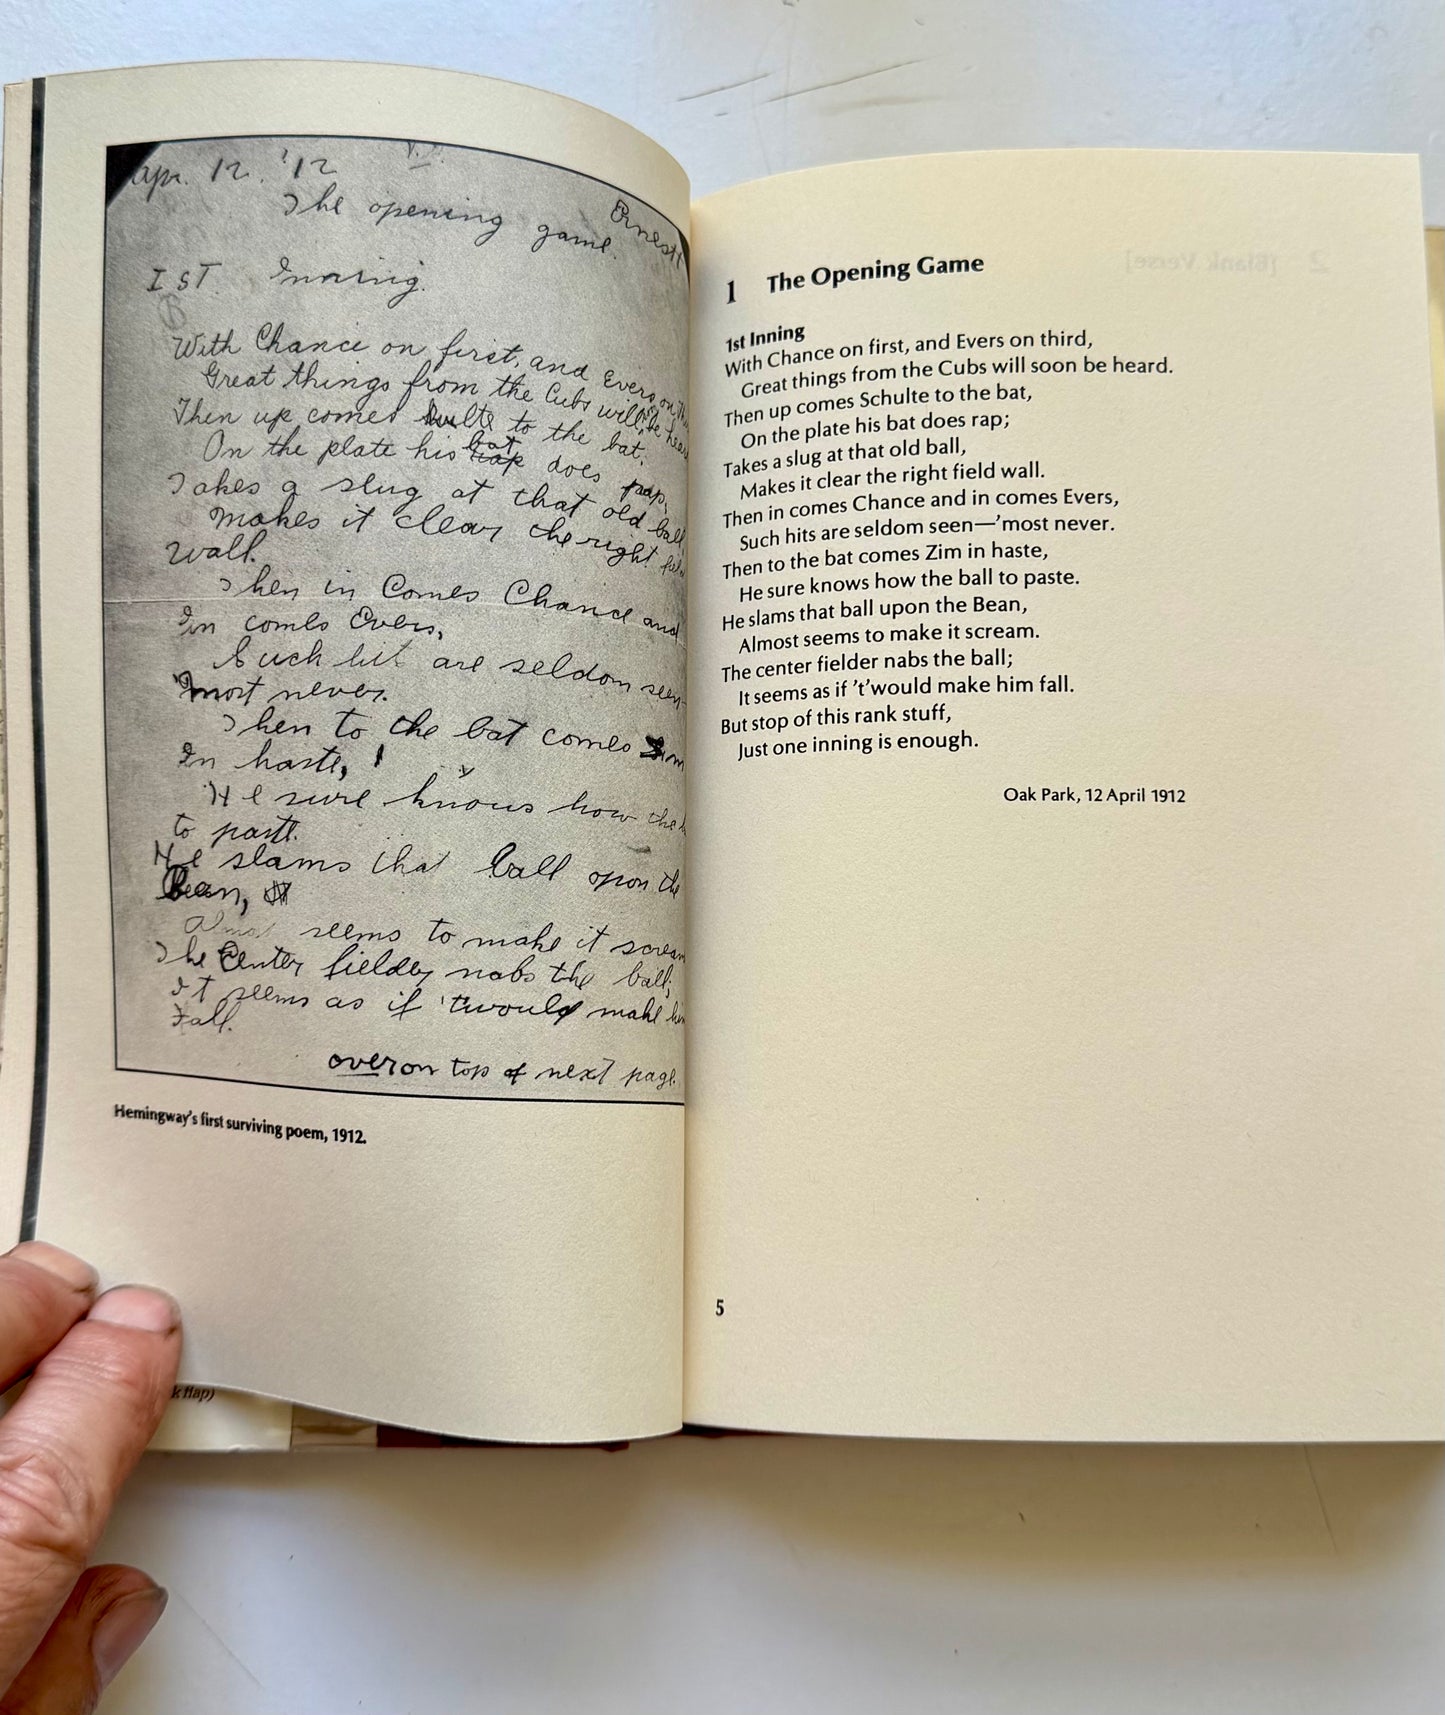 Apr. 12. '12
The opening game.
Ernest H
1ST. Inning.
With Chance on first, and Evers on th
Great things from the Cubs will be hear
Then up comes Shulte to the bat.
On the plate his bat does rap,
Takes a slug at that old ball,
makes it clear the right fiel
wall.
Then in Comes Chance and
In comes Evers,
Such hit are seldom seen-
'most never.
Then to the bat comes Zim
In haste,
He sure knows how the b
to paste.
He slams that ball upon the
Bean,
Almost seems to make it scream
The Center fielder nabs the ball;
It seems as if 'twould make him
Fall.
over on top of next page.
Hemingway's first surviving poem, 1912.
k flap)
1 The Opening Game
1st Inning
With Chance on first, and Evers on third,
Great things from the Cubs will soon be heard.
Then up comes Schulte to the bat,
On the plate his bat does rap;
Takes a slug at that old ball,
Makes it clear the right field wall.
Then in comes Chance and in comes Evers,
Such hits are seldom seen—'most never.
Then to the bat comes Zim in haste,
He sure knows how the ball to paste.
He slams that ball upon the Bean,
Almost seems to make it scream.
The center fielder nabs the ball;
It seems as if 't'would make him fall.
But stop of this rank stuff,
Just one inning is enough.
Oak Park, 12 April 1912
5
2 [Blank Verse]